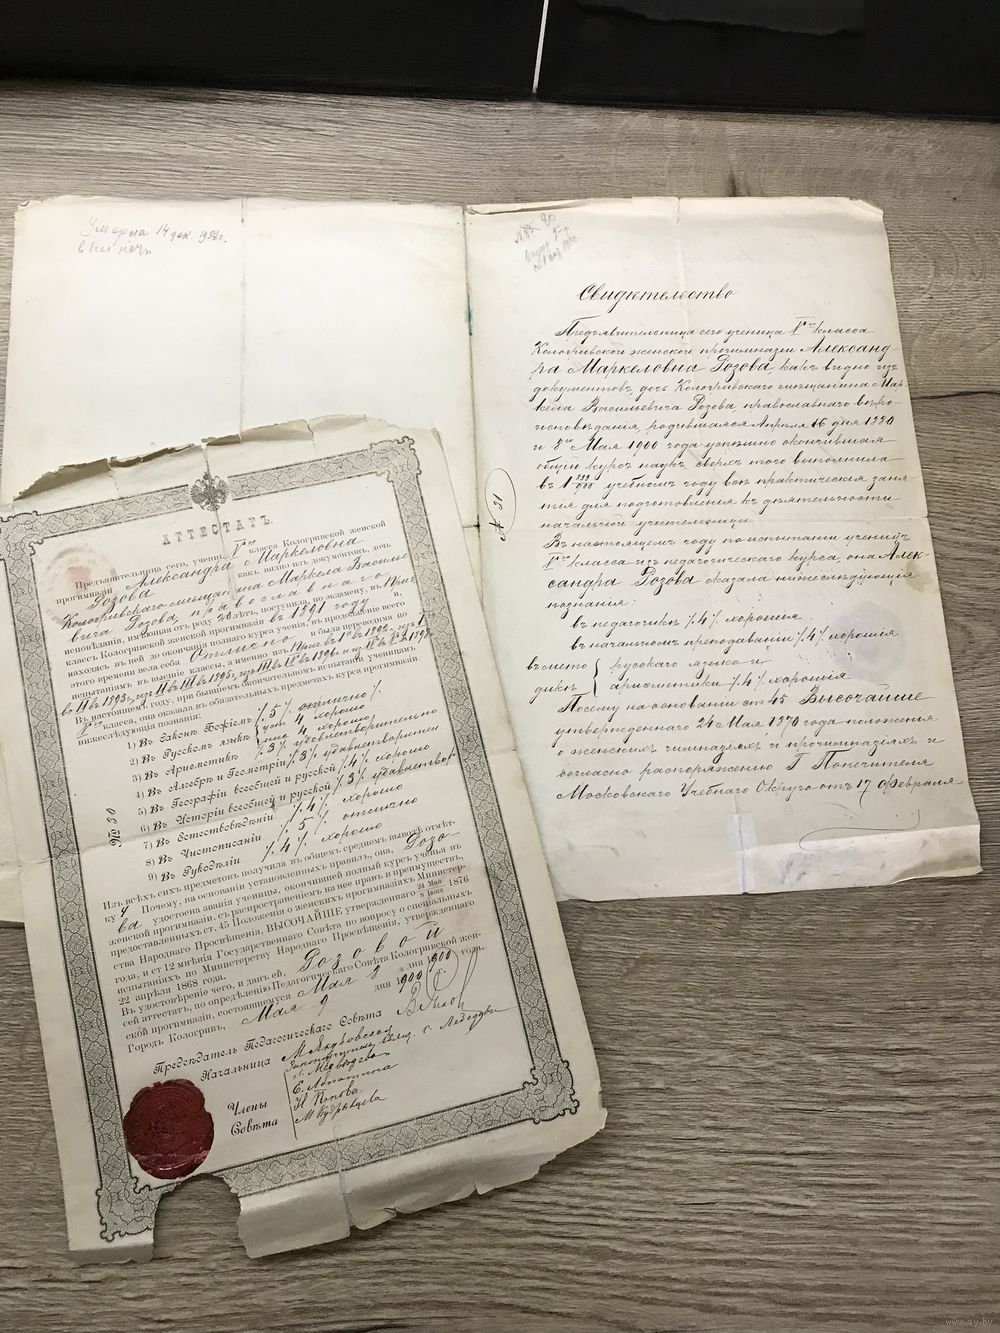 Умерла 14 дек. 1958г.
в 1 час ночи
Свидѣтельство
Предъявительница сего ученица V го класса
Кологривской женской прогимназіи Александ-
ра Маркеловна Розова, какъ видно изъ
документовъ, дочь Кологривскаго мѣщанина Мар-
кела Васильевича Розова, православнаго вѣро-
исповѣданія, родившаяся Апрѣля 16 дня 1880
и 8 го Мая 1900 года успѣшно окончившая
общій курсъ наукъ, сверхъ того выполнила
въ 1899/900 учебномъ году всѣ практическія заня-
тія для подготовленія къ дѣятельности
начальной учительницы.
Въ настоящемъ году по испытаніи ученицъ
V го класса изъ педагогическаго курса, она Алек-
сандра Розова оказала нижеслѣдующія
познанія:
въ педагогикѣ /. 4 /. хорошія
въ начальномъ преподаваніи /. 4 /. хорошія
въ мето-
дикѣ
русскаго языка и
ариѳметики /. 4 /. хорошія
Посему на основаніи ст 45 Высочайше
утвержденнаго 24 Мая 1870 года положенія
о женскихъ гимназіяхъ и прогимназіяхъ и
согласно распоряженію Г. Попечителя
Московскаго Учебнаго Округа отъ 17 Февраля
№ 31
АТТЕСТАТЪ.
Предъявительница сего, ученица V го класса Кологривской женской
прогимназіи Александра Маркеловна
Розова какъ видно изъ документовъ, дочь
Кологривскаго мѣщанина Маркела Василье
вича Розова православнаго
исповѣданія, имѣющая отъ роду 20 лѣтъ, поступила, по экзамену, въ
классъ Кологривской женской прогимназіи въ 1891 году и,
находясь въ ней до окончанія полнаго курса ученія, въ продолженіе всего
этого времени вела себя Отлично и была переводима по
испытаніямъ въ высшіе классы, а именно
Въ настоящемъ году, при бывшемъ окончательномъ испытаніи ученицамъ
V го класса, она оказала въ обязательныхъ предметахъ курса прогимназіи
нижеслѣдующія познанія:
1) Въ Законѣ Божіемъ /. 5 /. отлично /.
2) Въ Русскомъ языкѣ уст 4 хорошо
пис 4 хорошо
3) Въ Ариѳметикѣ /. 3 /. удовлетворительно
4) Въ Алгебрѣ и Геометріи /. 3 /. удовлетворител
5) Въ Географіи всеобщей и русской /. 4 /. хорошо
6) Въ Исторіи всеобщей и русской /. 3 /. удовлетво
7) Въ Естествовѣдѣніи /. 4 /. хорошо
8) Въ Чистописаніи /. 5 /. отлично
9) Въ Рукодѣліи /. 4 /. хорошо
№ 30
Изъ всѣхъ сихъ предметовъ получила въ общемъ среднемъ выводѣ отмѣт-
ку 4 Почему, на основаніи установленныхъ правилъ, она, Розо-
ва удостоена званія ученицы, окончившей полный курсъ ученія въ
женской прогимназіи, съ распространеніемъ на нее правъ и преимуществъ,
предоставленныхъ ст. 45 Положенія о женскихъ прогимназіяхъ Министер-
ства Народнаго Просвѣщенія, ВЫСОЧАЙШЕ утвержденнаго
года, и ст 12 мнѣнія Государственнаго Совѣта по вопросу о спеціальныхъ
испытаніяхъ по Министерству Народнаго Просвѣщенія, утвержденнаго
22 апрѣля 1868 года.
Въ удостовѣреніе чего, и данъ ей, Розовой
сей аттестатъ, по опредѣленію Педагогическаго Совѣта Кологривской жен-
ской прогимназіи, состоявшемуся Мая 8 дня 1900 года.
Городъ Кологривъ, Мая 9 дня 1900 г.
Предсѣдатель Педагогическаго Совѣта
Начальница М. Якубовская
Члены
Совѣта
Законоучитель Свящ. с. Лебедевъ
Медвѣдева
Е. Лопатина
Н Попова
М Кудрявцева
www.ay.by